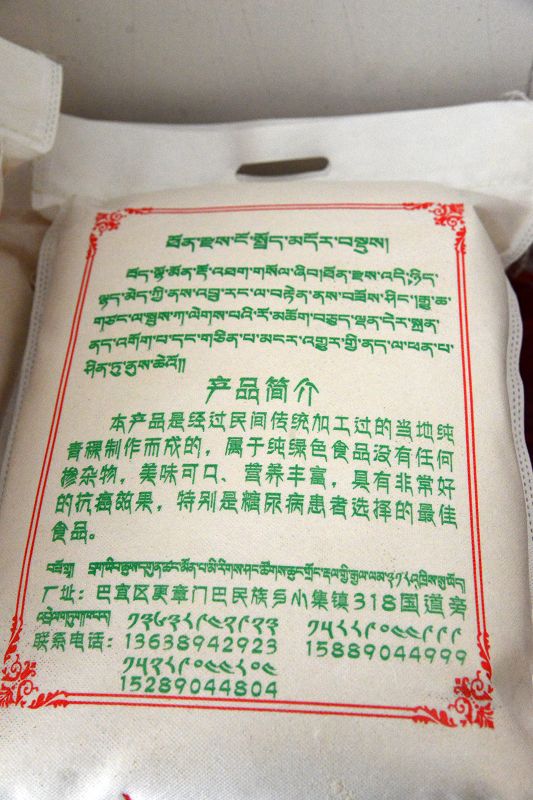 ཐོན་རྫས་ངོ་སྤྲོད་མདོར་བསྡུས།
གཙང་ལ་སྤུས་ཀ་ལེགས་པའི་རོ་མཆོག་བཅུད་ལྡན་དེར་སྨན་
ནད་འགོག་པ་དང་གཅིན་པ་མངར་འགྱུར་གྱི་ནད་ལ་ཕན་པ་
ཤིན་ཏུ་ནུས་ཆེའོ།།
产品简介
本产品是经过民间传统加工过的当地纯
青稞制作而成的，属于纯绿色食品没有任何
掺杂物，美味可口、营养丰富，具有非常好
的抗癌效果，特别是糖尿病患者选择的最佳
食品。
厂址：巴宜区更章门巴民族乡小集镇318国道旁
༡༣༦༣༨༩༤༢༩༢༣ ༡༥༨༨༩༠༤༤༩༩༩
联系电话：13638942923 15889044999
༡༥༢༨༩༠༤༤༨༠༤
15289044804